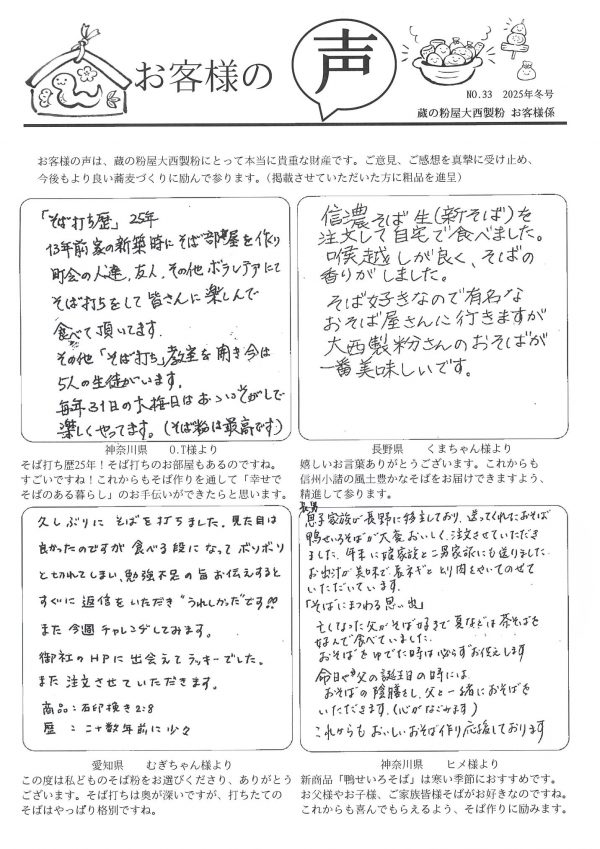 お客様の
声
NO.33 2025年冬号
蔵の粉屋大西製粉 お客様係
お客様の声は、蔵の粉屋大西製粉にとって本当に貴重な財産です。ご意見、ご感想を真摯に受け止め、
今後もより良い蕎麦づくりに励んで参ります。（掲載させていただいた方に粗品を進呈）
「そば打ち歴」 25年
13年前家の新築時にそば部屋を作り
町会の人達、友人、その他ボランテアにて
そば打ちをして皆さんに楽しんで
食べて頂いてます。
その他「そば打ち」教室を開き今は
5人の生徒がいます。
毎年31日の大晦日はおいそがしで
楽しくやってます。（そば粉は最高です）
神奈川県 O.T様より
そば打ち歴25年！そば打ちのお部屋もあるのですね。
すごいですね！これからもそば作りを通して「幸せで
そばのある暮らし」のお手伝いができたらと思います。
信濃そば生(新そば)を
注文して自宅で食べました。
喉越しが良く、そばの
香りがしました。
そば好きなので有名な
おそば屋さんに行きますが
大西製粉さんのおそばが
一番美味しいです。
長野県 くまちゃん様より
嬉しいお言葉ありがとうございます。これからも
信州小諸の風土豊かなそばをお届けできますよう、
精進して参ります。
久しぶりに そばを打ちました。見た目は
良かったのですが 食べる段になって ボリボリ
と切れてしまい、勉強不足の旨お伝えすると
すぐに 返信をいただき“うれしかった”です!!
また 今週 チャレンジしてみます。
御社のHPに 出会えてラッキーでした。
また 注文させていただきます。
商品：石臼挽き2:8
歴：二十数年前に少々
愛知県 むぎちゃん様より
この度は私どものそば粉をお選びくださり、ありがとう
ございます。そば打ちは奥が深いですが、打ちたての
そばはやっぱり格別ですね。
長男
息子家族が長野に移住しており、送ってくれたおそば
鴨せいろそばが大変おいしく、注文させていただき
ました。年末に娘家族と二男家族にも送りました
お出汁が美味で長ネギととり肉をやいてのせて
いただいています。
「そばにまつわる思い出」
亡くなった父がそば好きで夏などは茶そばを
好んで食べていました。
おそばをゆでた時は必らずお供えします
命日や父の誕生日の時には
おそばの陰膳をし、父と一緒におそばを
いただきます。(心がなごみます)
これからもおいしいおそば作り応援しております
神奈川県 ヒメ様より
新商品「鴨せいろそば」は寒い季節におすすめです。
お父様やお子様、ご家族皆様そばがお好きなのですね。
これからも喜んでもらえるよう、そば作りに励みます。